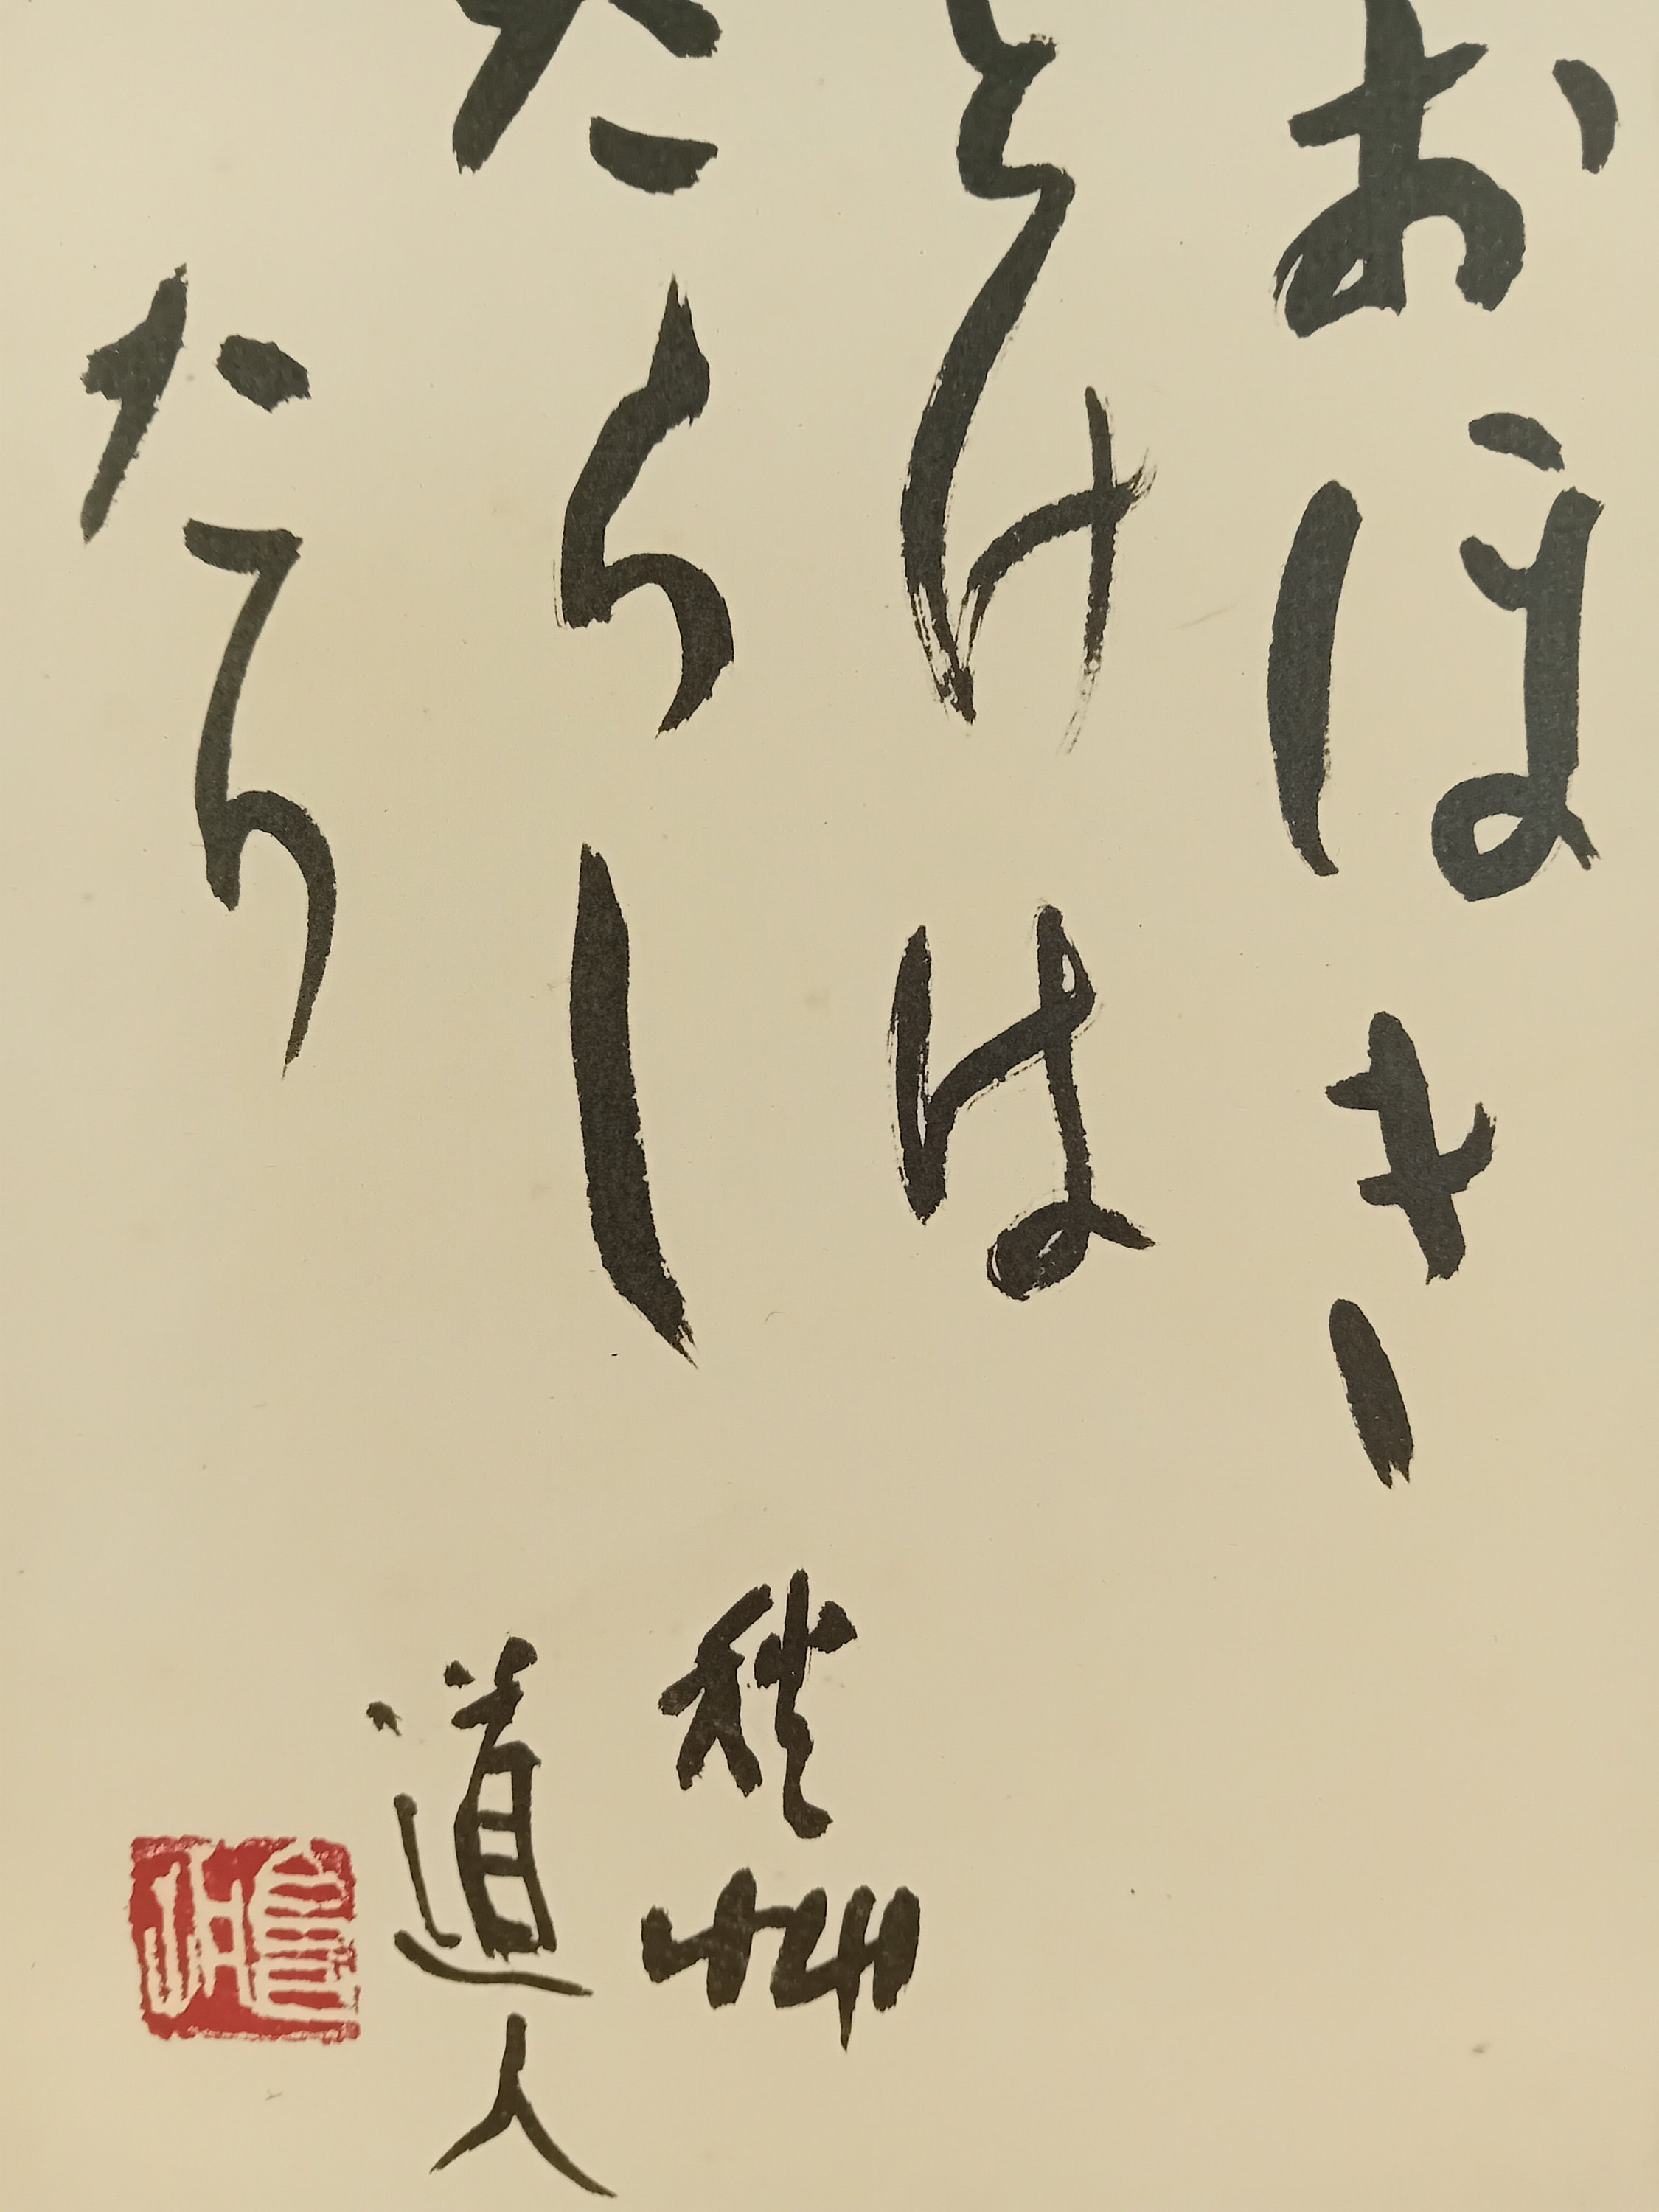 おほき
とけは
たらし
たり
秋艸
道人